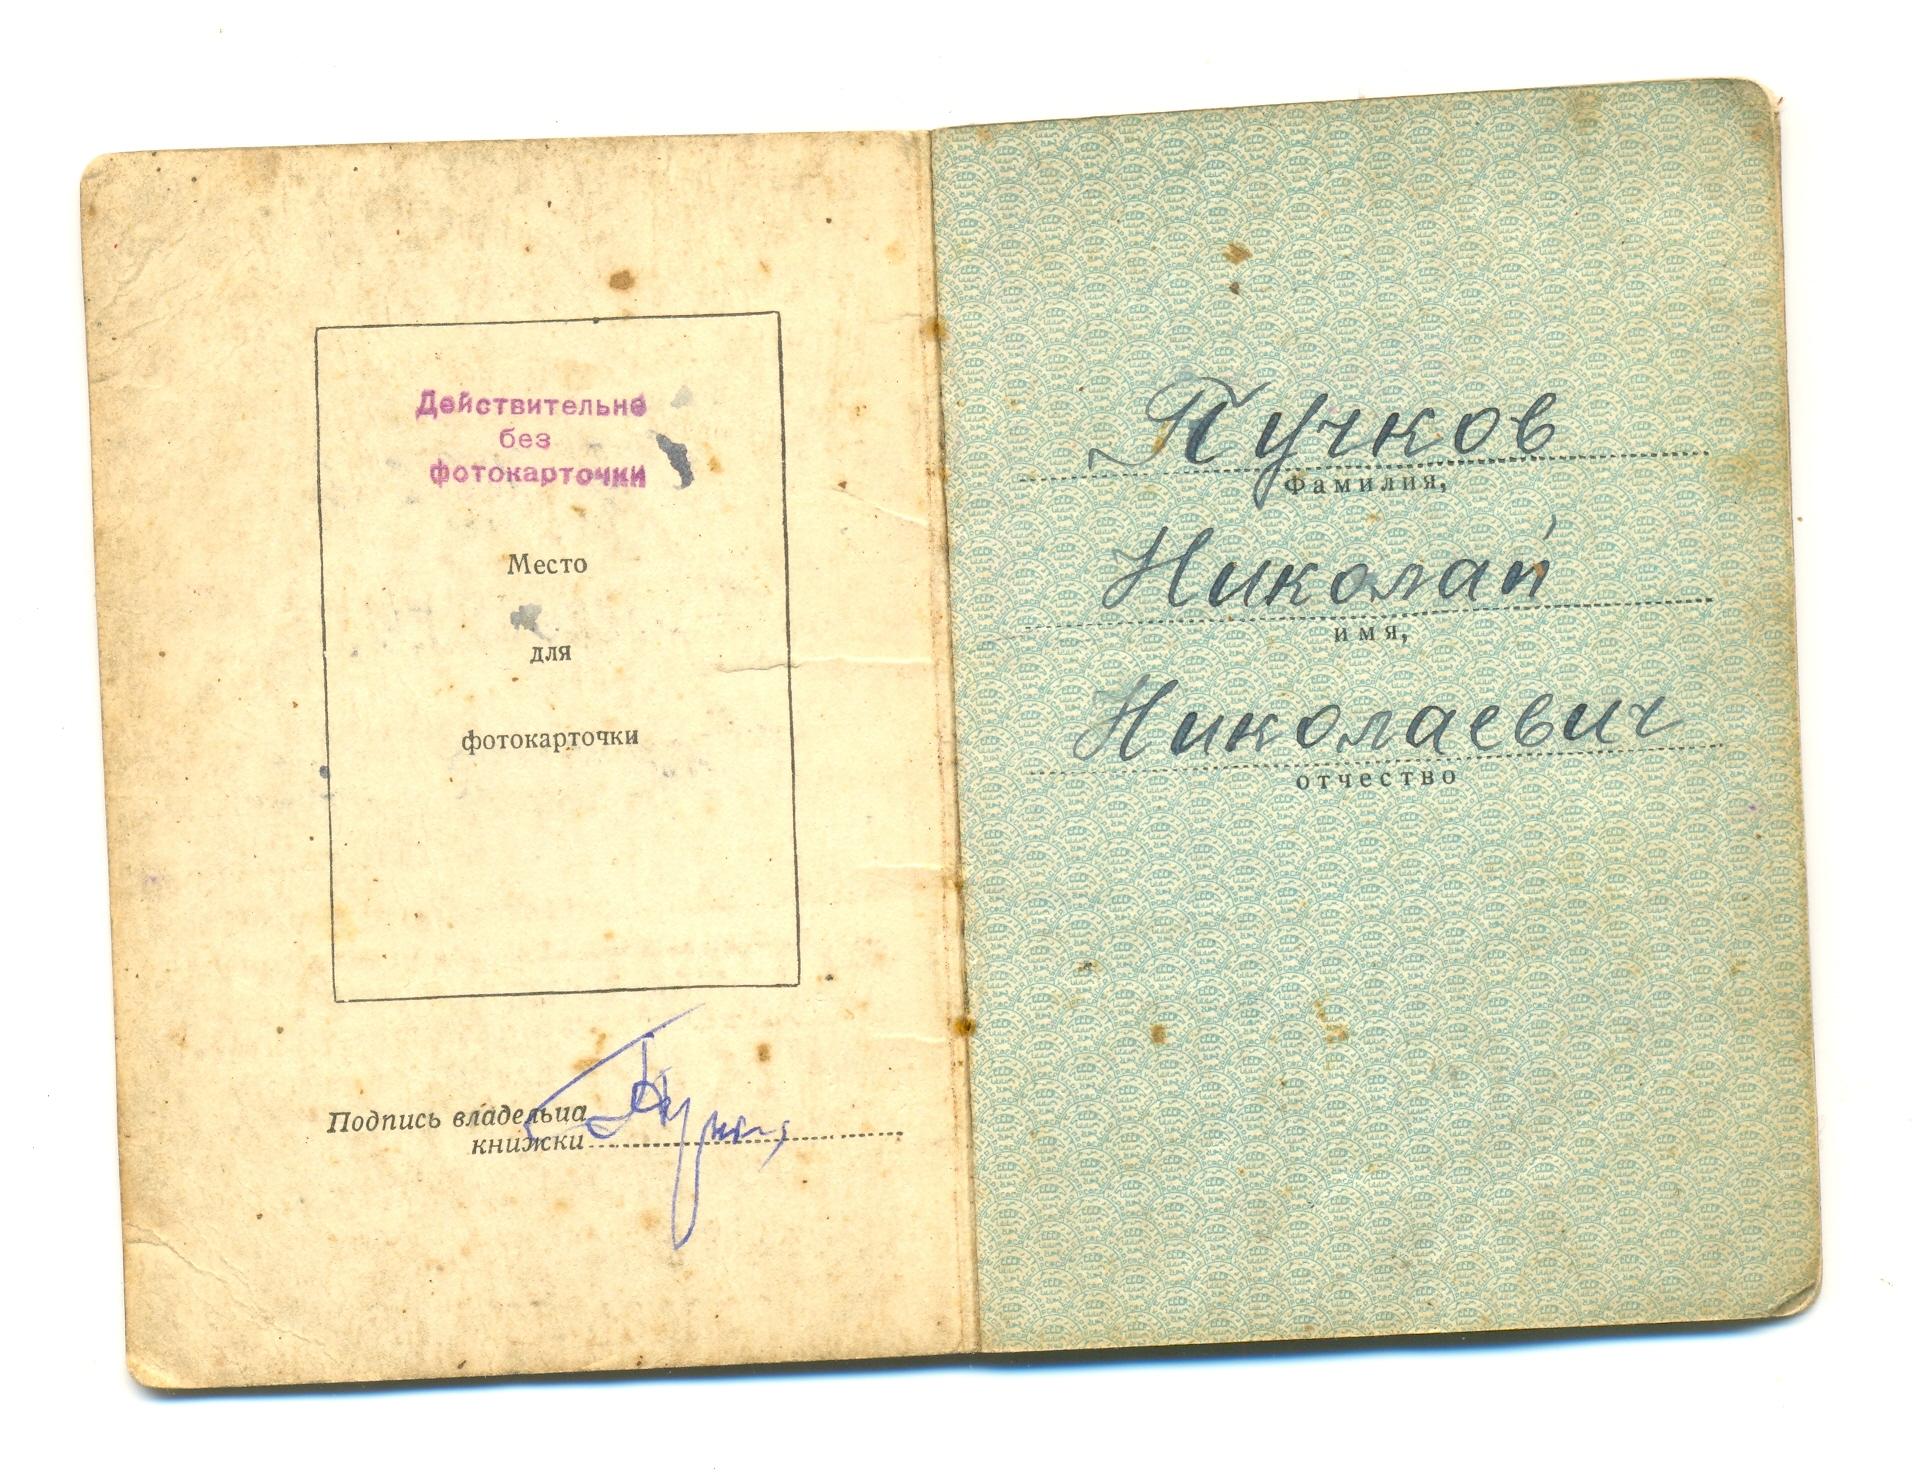 Действительно
без
фотокарточки
Место
для
фотокарточки
Подпись владельца
книжки
Пучков
Фамилия,
Николай
имя,
Николаевич
отчество